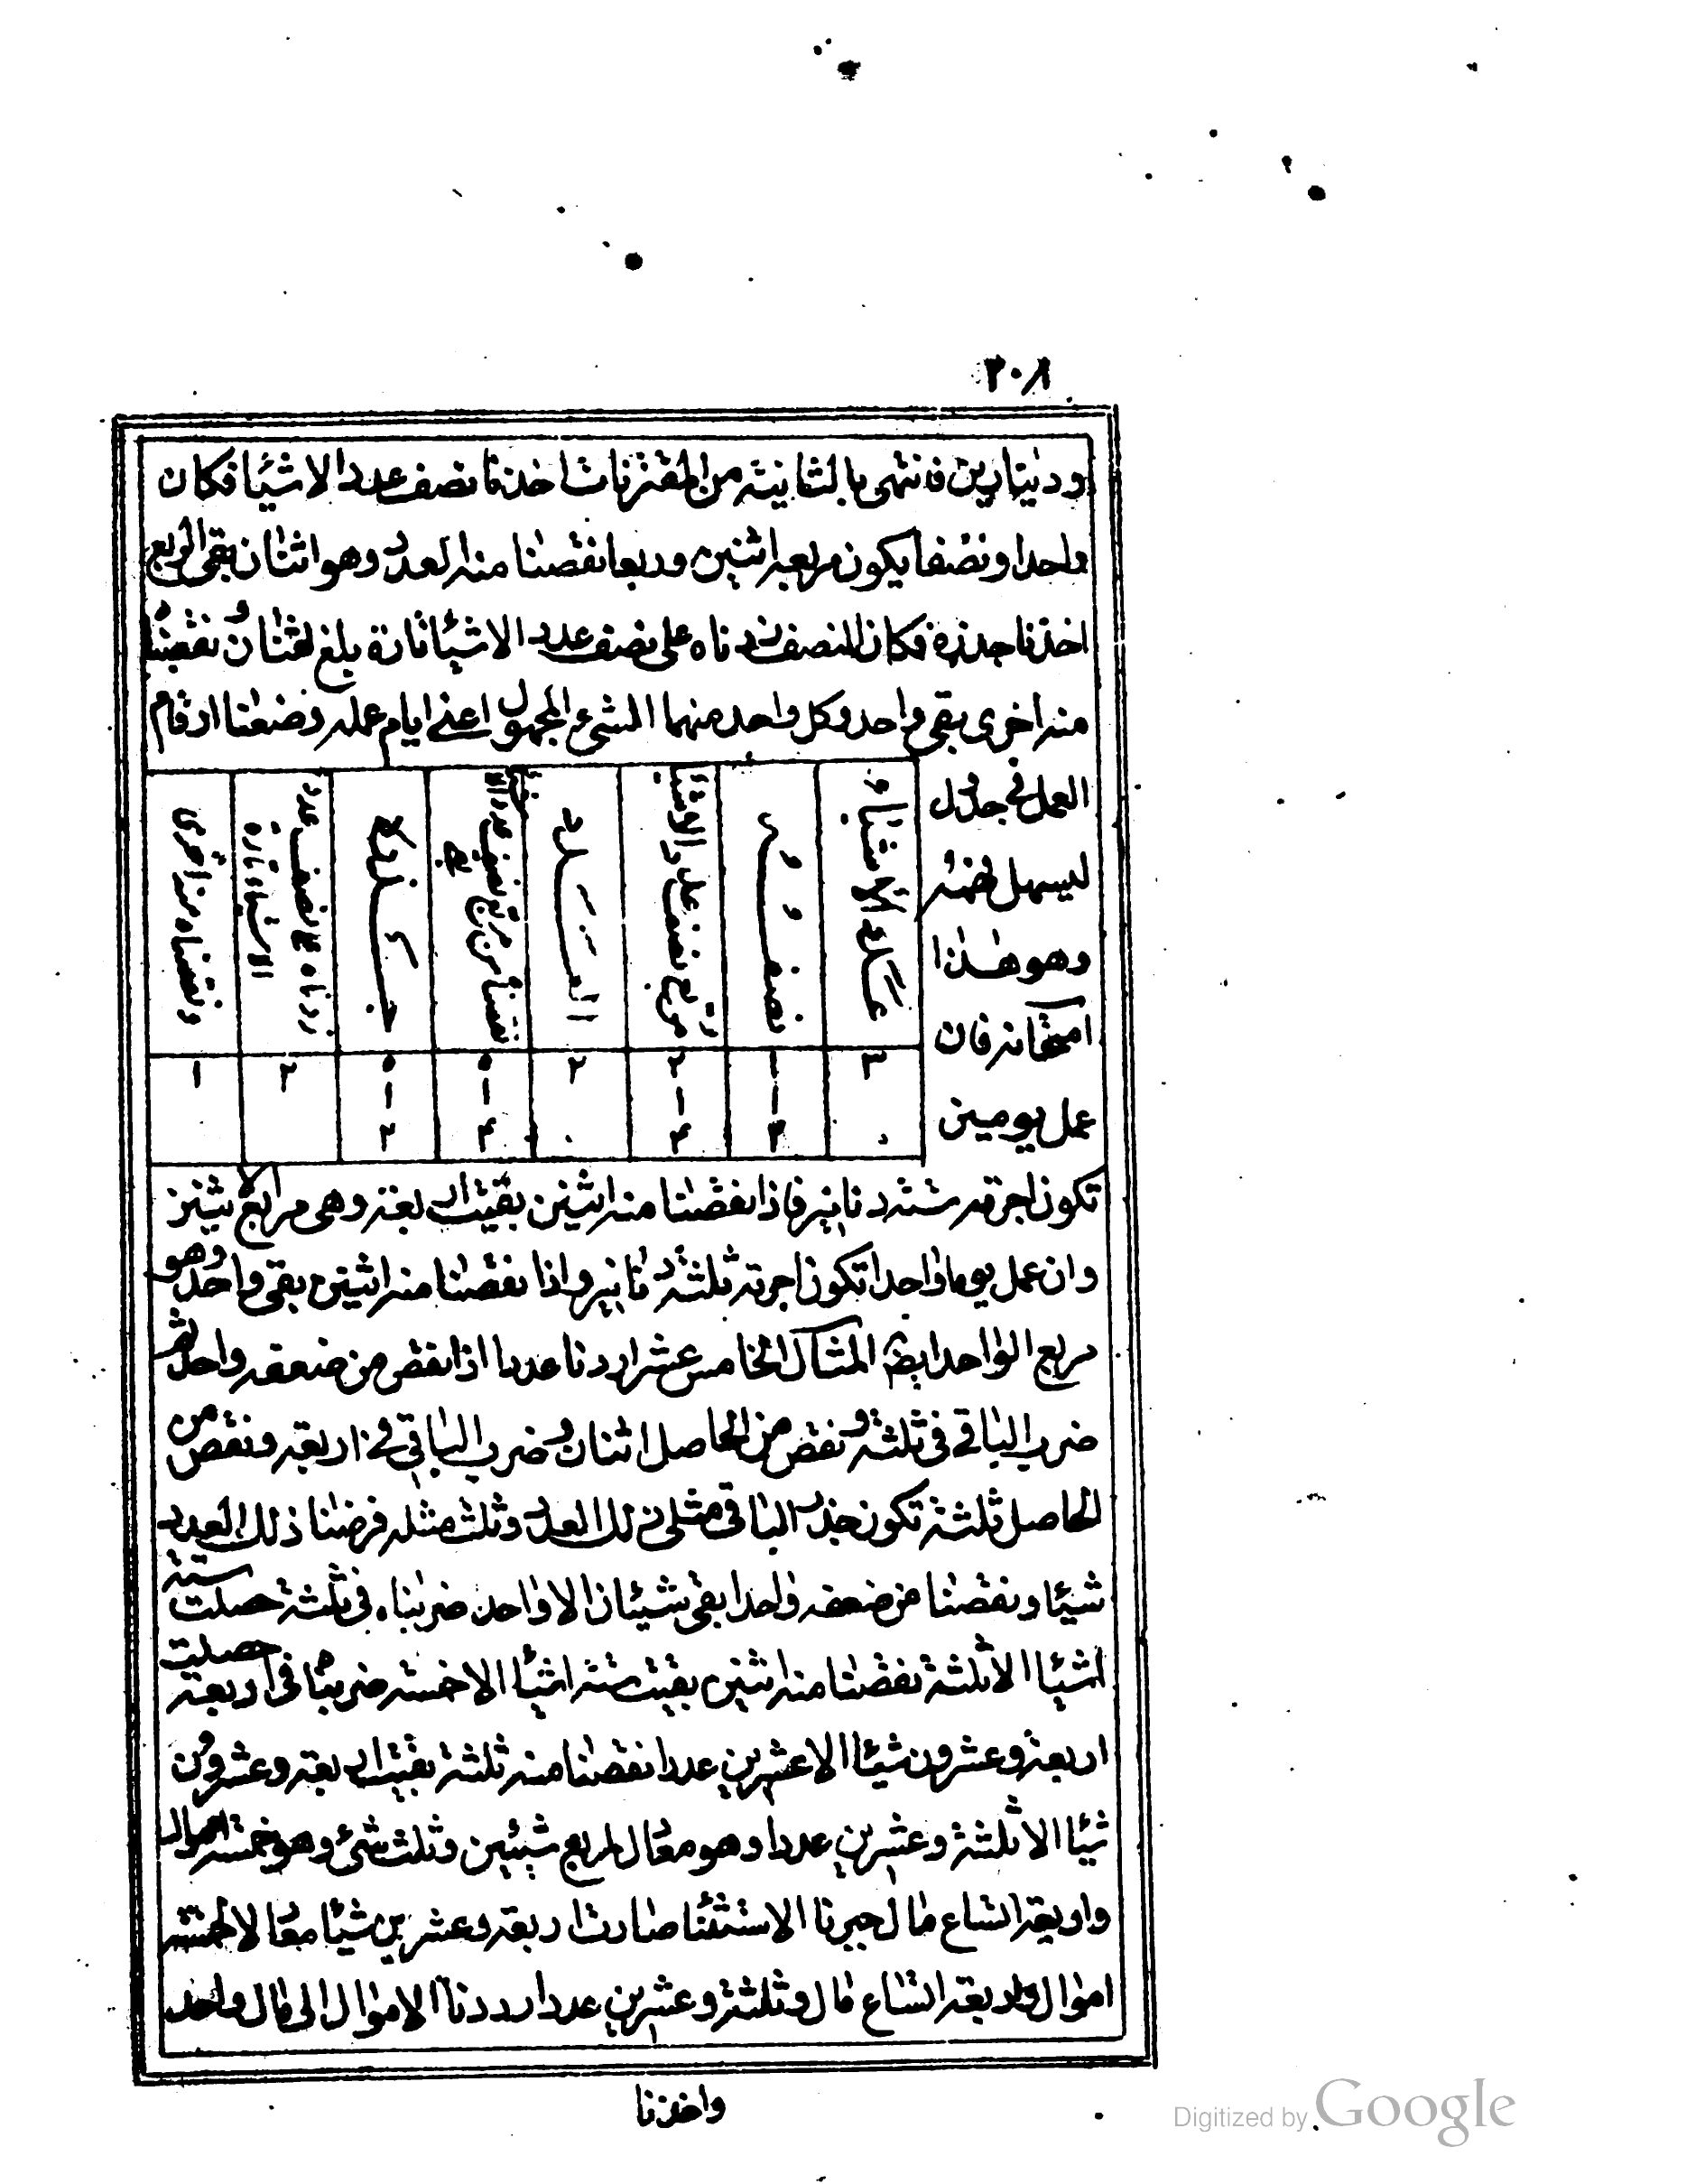 ٢٠٨
ودينارين فانتهى بالثانية من المقترنات اخذنا نصف عدد الاشيا فكان
واحدا ونصفا يكون مربعه اثنين وربعا نقصنا منه العدد وهو اثنان بقى الربع
اخذنا جذره فكان النصف زدناه على نصف عدد الاشيا تارة بلغ اثنان ونقصنا
منه اخرى بقى واحد وكل واحد منهما الشىء المجهول اعنى ايام عمله وضعنا ارقام
العمل فى جدول
ليسهل فهمه
وهو هذا
امتحانه فان
عمل يومين
عدد الاشياء
نصفه
مربع نصف عدد الاشيا
العدد
نقصناه من مربع نصف عدد الاشيا بقى
جذره
زدناه على نصف عدد الاشياء تارة
ونقصناه منه اخرى
٣ ١ ٢ ٢ ٠ ٠ ٢ ١
١ ١ ١ ١
٠ ٢ ٤ ٠ ٤ ٢
تكون اجرته ستة دنانير فاذا نقصنا منه اثنين بقيت اربعة وهى مربع الاثنين
وان عمل يوما واحدا تكون اجرته ثلثة دنانير واذا نقصنا منه اثنين بقى واحد وهو
مربع الواحد ايضا المثال الخامس عشر اردنا عددا اذا نقص من ضعفه واحد ثم
ضرب الباقى فى ثلثة ونقص من الحاصل اثنان وضرب الباقى فى اربعة ونقص من
الحاصل ثلثة تكون جذر الباقى مثلى ذلك العدد وثلث مثله فرضنا ذلك العدد
شيئا ونقصنا من ضعفه واحدا بقى شيئان الا واحد ضربناه فى ثلثة حصلت ستة
اشيا الا ثلثة نقصنا منه اثنين بقيت ستة اشيا الا خمسة ضربنا فى اربعة حصلت
اربعة وعشرون شيئا الا عشرين عددا نقصنا منه ثلثة بقيت اربعة وعشرون
شيئا الا ثلثة وعشرين عددا وهو معادل لمربع شيئين وثلث شئ وهو خمسة اموال
واربعة اتساع مال جبرنا الاستثنا صارت اربعة وعشرين شيئا معادلا لخمسة
اموال واربعة اتساع مال وثلثة وعشرين عددا رددنا الاموال الى مال واحد
واخذنا
Digitized by Google